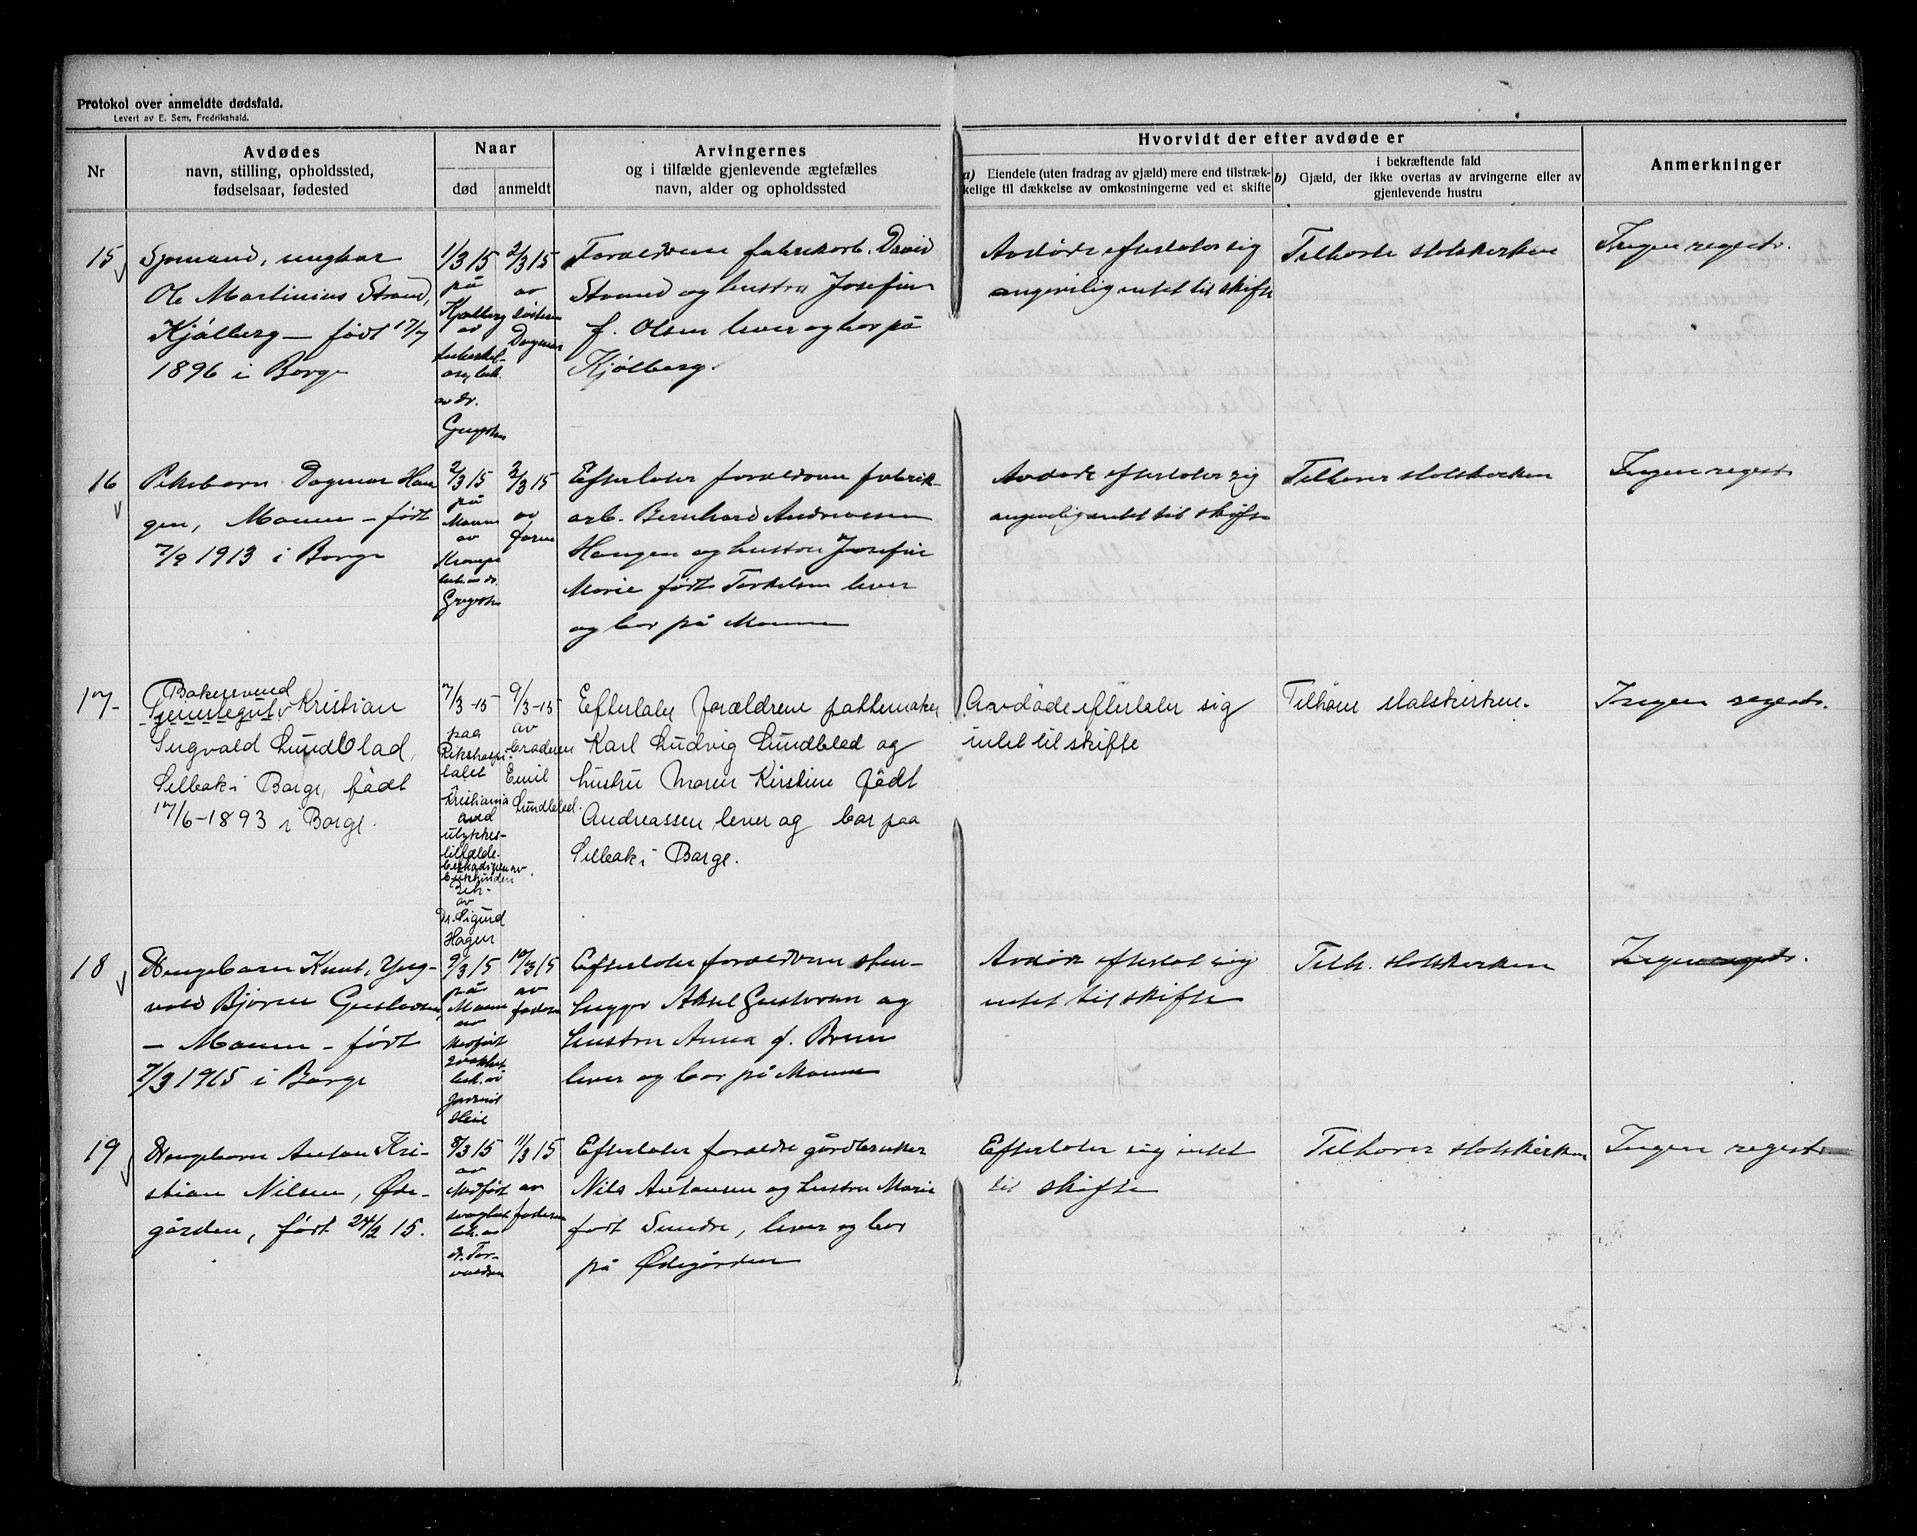 Protokol over anmeldte dødsfald.
Levert av E. Sem, Fredrikshald.
Nr
Avdødes
navn, stilling, opholdssted,
fødselsaar, fødested
Naar
død
anmeldt
Arvingernes
og i tilfælde gjenlevende ægtefælles
navn, alder og opholdssted
Hvorvidt der efter avdøde er
a) Eiendele (uten fradrag av gjæld) mere end tilstræk-
kelige til dækkelse av omkostningerne ved et skifte
i bekræftende fald
b) Gjæld, der ikke overtas av arvingerne eller av
gjenlevende hustru
Anmerkninger
15
Sjømand, ungkar
Ole Martinius Strand,
Kjølberg – født 17/7
1896 i Borge
1/3 15
på
Kjølberg
av
tuberkel-
bek.
av dr.
2/3 15
av
søsteren
Dagmar
Forældrene fabrikarb. David
Strand og hustru Josefine
f. Olsen lever og bor på
Kjølberg.
Avdøde efterlater sig
angivelig intet til skifte
Tilhørte statskirken
Ingen registr.
16
Pikebarn Dagmar Hau
gen, Moum – født
7/9 1913 i Borge
2/3 15
på
Moum
av
Krampe
bek. av dr.
2/3 15
av
faren
Efterlater forældrene fabrik-
arb. Bernhard Andreassen
Haugen og hustru Josefine
Marie født Torkelsen lever
og bor på Moum
Avdøde efterlater sig
angivelig intet til skifte
Tilhører statskirken
Ingen registr.
17
Bakersvend
Tjenestegut Kristian
Sigvald Lundblad,
Selbak i Borge, født
17/6-1893 i Borge.
7/3-15
paa
Rikshospi-
talet
Kristiania
ved
ulykkes-
tilfælde
Bek-
av
Dr. Sigurd
Hagen
9/3-15
av
broderen
Emil
Lundblad.
Efterlater forældrene pottemaker
Karl Ludvig Lundblad og
hustru Maren Kirstine født
Andreassen lever og bor paa
Selbak i Borge.
Avdøde efterlater sig
intet til skifte
Tilhører statskirken.
Ingen registr.
18
Drengebarn Knut, Yng-
vald Bjørn Gustavsen
– Moum – født
7/3 1915 i Borge
9/3 15
på
Moum
av
Medfødt
svakhet
bek. av
jordmor
10/3 15
av
faderen
Efterlater forældrene sten-
hugger Aksel Gustavsen og
hustru Anna f. Brun
lever og bor på Moum
Avdøde efterlot sig
intet til skifte
Tilh. statskirken
Ingen registr.
19
Drengebarn Anton Kri-
stian Nilsen, Øde-
gården, født 24/2 15.
8/3 15
av
Medfødt
svaghet
bek. av
dr. Tor-
valdsen
11/3 15
av
faderen
Efterlater forældre gårdbruker
Nils Antonsen og hustru Marie
født Sundre, lever og bor
på Ødegården
Efterlater sig intet
til skifte
Tilhører statskirken
Ingen registr.